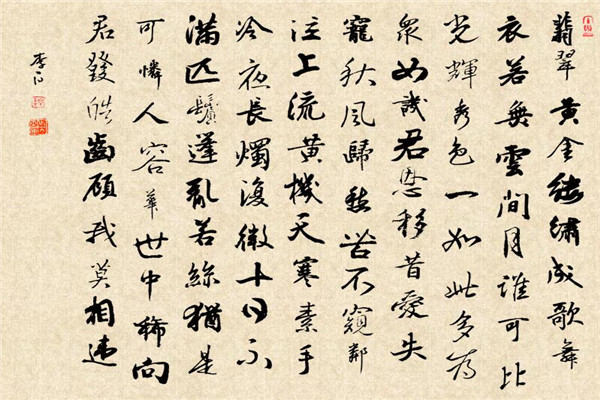 翡翠黃金縷繡成歌舞
衣若無雲間月誰可比
光輝秀色一如此多為
眾女譏君恩移昔愛失
寵秋風歸愁苦不窺鄰
泣上流黃機天寒素手
冷夜長燭復微十日不
滿匹鬢蓬亂若絲猶是
可憐人容華世中稀向
君發皓齒顧我莫相違
李白